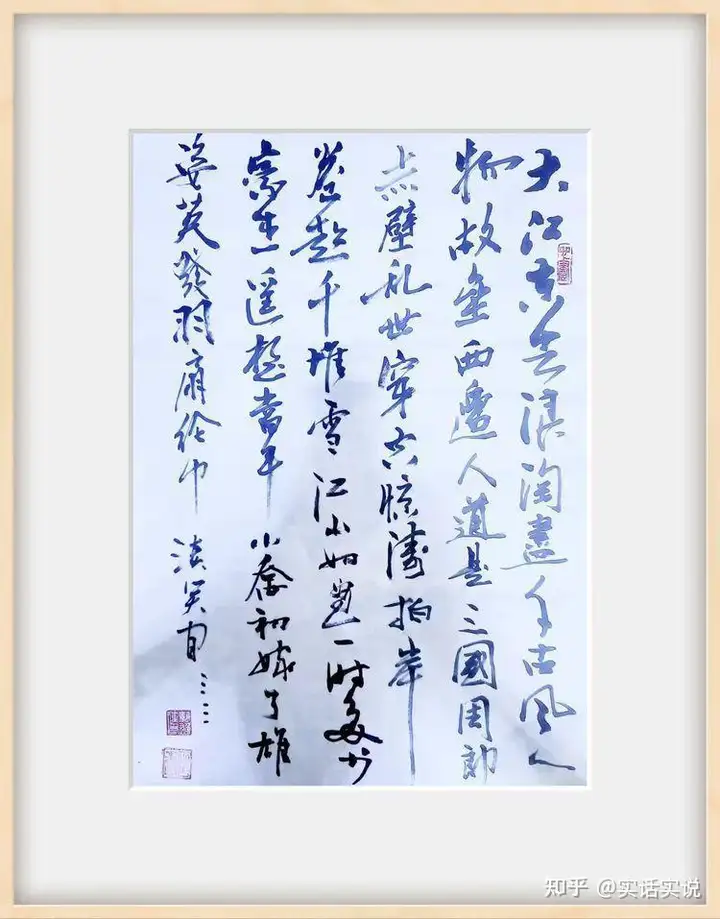 大江东去浪淘盡千古風人
物故垒西邊人道是三國周郎
赤壁乱世穿空惊濤拍岸
卷起千堆雪江山如画一时多少
豪杰遥想當年小喬初嫁了雄
姿英發羽扇纶巾谈笑间
知乎 @实话实说